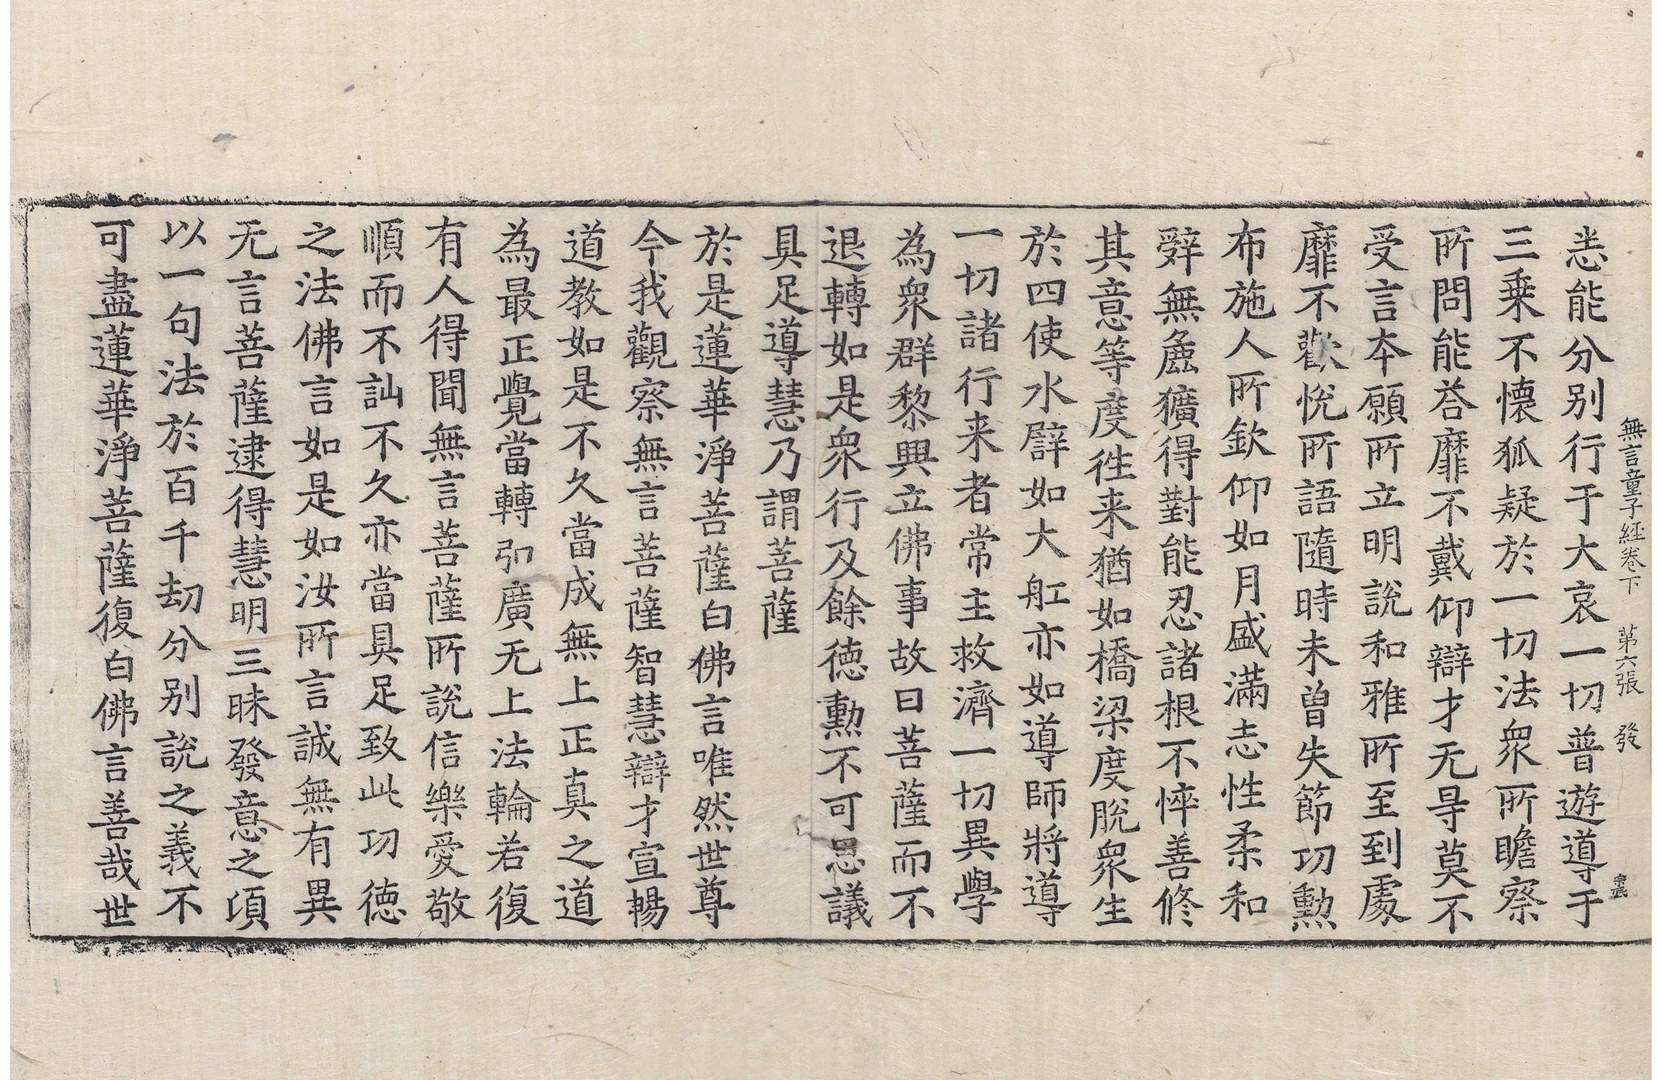 無言童子經卷下　第六張　發
恙能分別行于大哀一切普遊導于
三乗不懷狐疑於一切法衆所瞻察
所問能荅靡不戴仰辯才无㝵莫不
受言夲願所立明說和雅所至到處
靡不歡悅所語隨時未曽失節功勲
布施人所欽仰如月盛滿志性柔和
辤無麁獷得對能忍諸根不悴善修
其意等度徃来猶如橋梁度脫衆生
於四使水譬如大舡亦如導師將導
一切諸行来者常主救濟一切異學
為衆群黎興立佛事故曰菩薩而不
退轉如是衆行及餘德勲不可思議
具足導慧乃謂菩薩
於是蓮華淨菩薩白佛言唯然世尊
今我觀察無言菩薩智慧辯才宣暢
道教如是不久當成無上正真之道
為最正覺當轉弘廣无上法輪若復
有人得聞無言菩薩所說信樂愛敬
順而不訕不久亦當具足致此功德
之法佛言如是如汝所言誠無有異
无言菩薩逮得慧明三昧發意之頃
以一句法於百千劫分別說之義不
可盡蓮華淨菩薩復白佛言善哉世